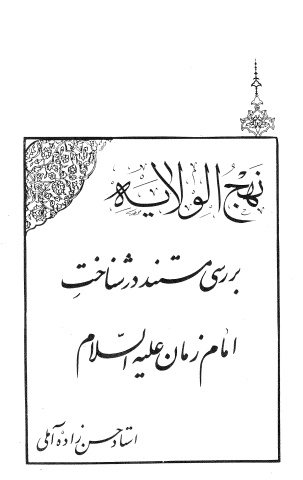 نهج الولایه
بررسی مستند در شناختِ
امام زمان علیه السّلام
استاد حسن زاده آملی